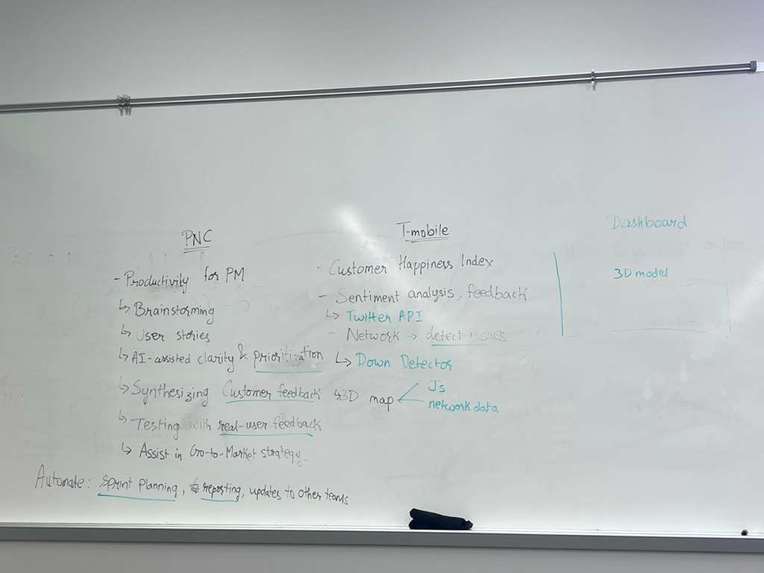 PNC
- Productivity for PM
↳ Brainstorming
↳ User stories
↳ AI-assisted clarity & prioritization
↳ Synthesizing Customer feedback
↳ Testing with real-user feedback
↳ Assist in Go-to-Market strategy.
Automate: Sprint Planning, reporting, updates to other teams
T-mobile
- Customer Happiness Index
- Sentiment analysis, feedback
↳ Twitter API
- Network → detect
↳ Down Detector
3D map
Js
network data
Dashboard
3D model